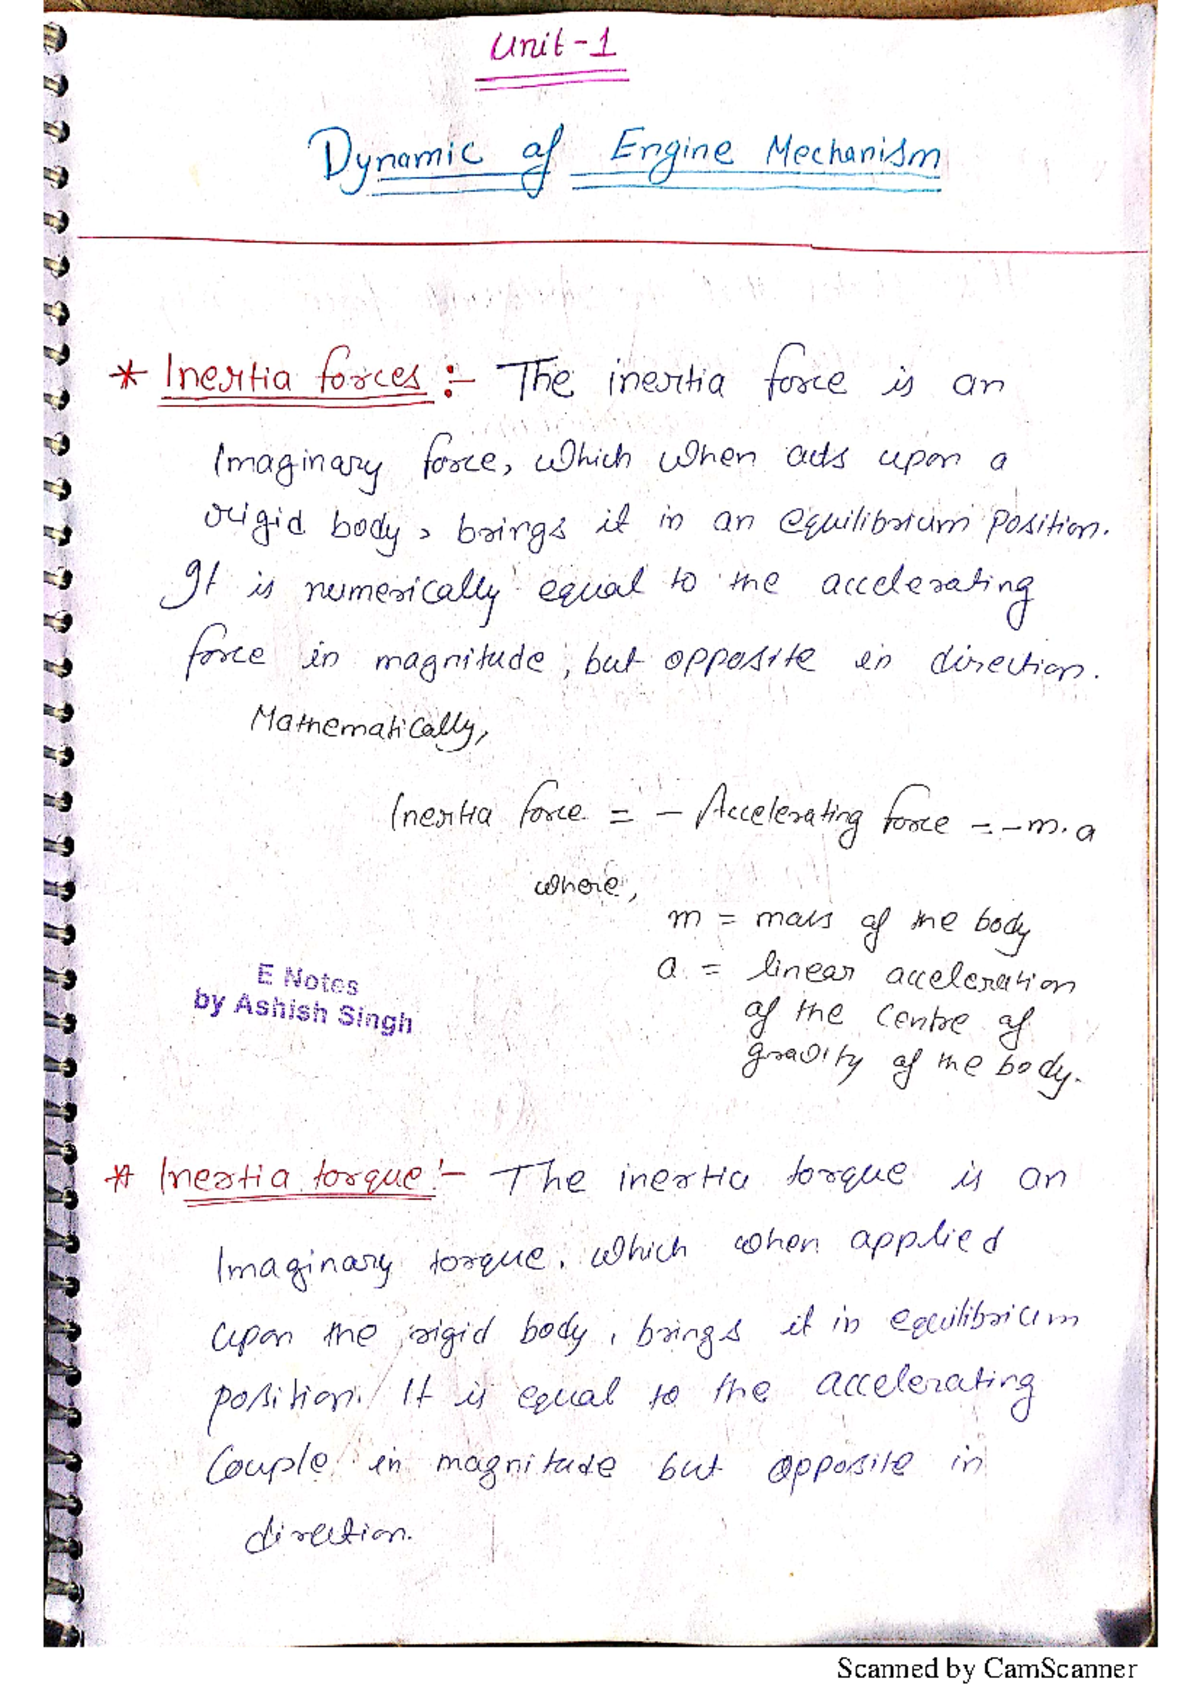 Unit-1
Dynamic of Engine Mechanism
* Inertia forces :- The inertia force is an
Imaginary force, which when acts upon a
rigid body, brings it in an equilibrium position.
It is numerically equal to the accelerating
force in magnitude, but opposite in direction.
Mathematically,
Inertia force = - Accelerating force = -m.a
where,
m = mass of the body
a = linear acceleration
of the centre of
gravity of the body.
E Notes
by Ashish Singh
* Inertia torque :- The inertia torque is an
Imaginary torque, which when applied
upon the rigid body, brings it in equilibrium
position. It is equal to the accelerating
Couple in magnitude but opposite in
direction.
Scanned by CamScanner